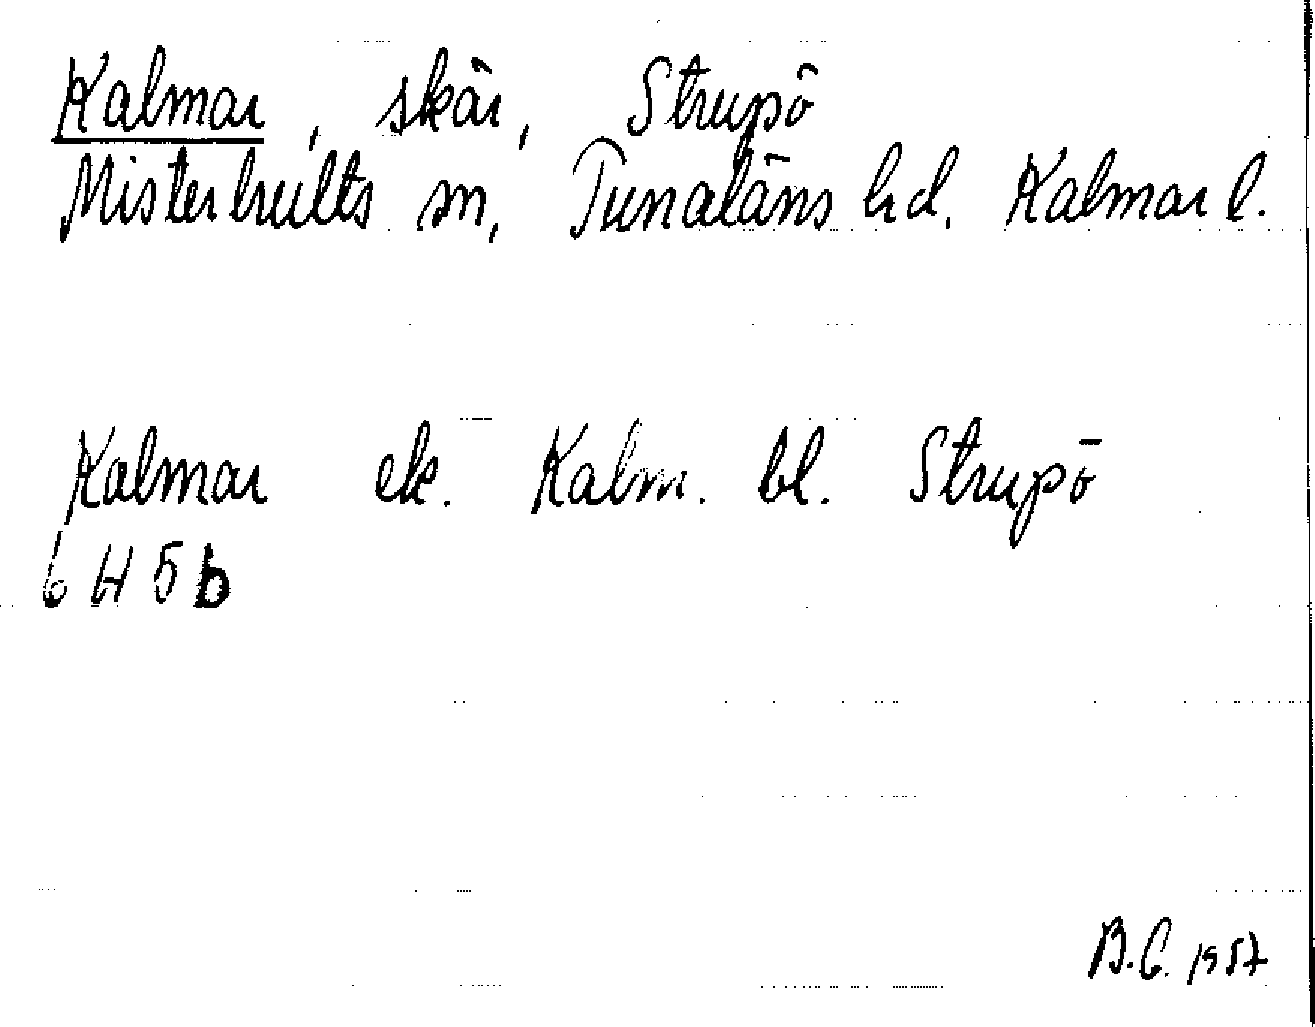 Kalmar, skär, Strupö
Misterhults sn, Tunaläns hd. Kalmar l.
Kalmar ek. Kalm. bl. Strupö
6 H 5 b
B.E. 1957